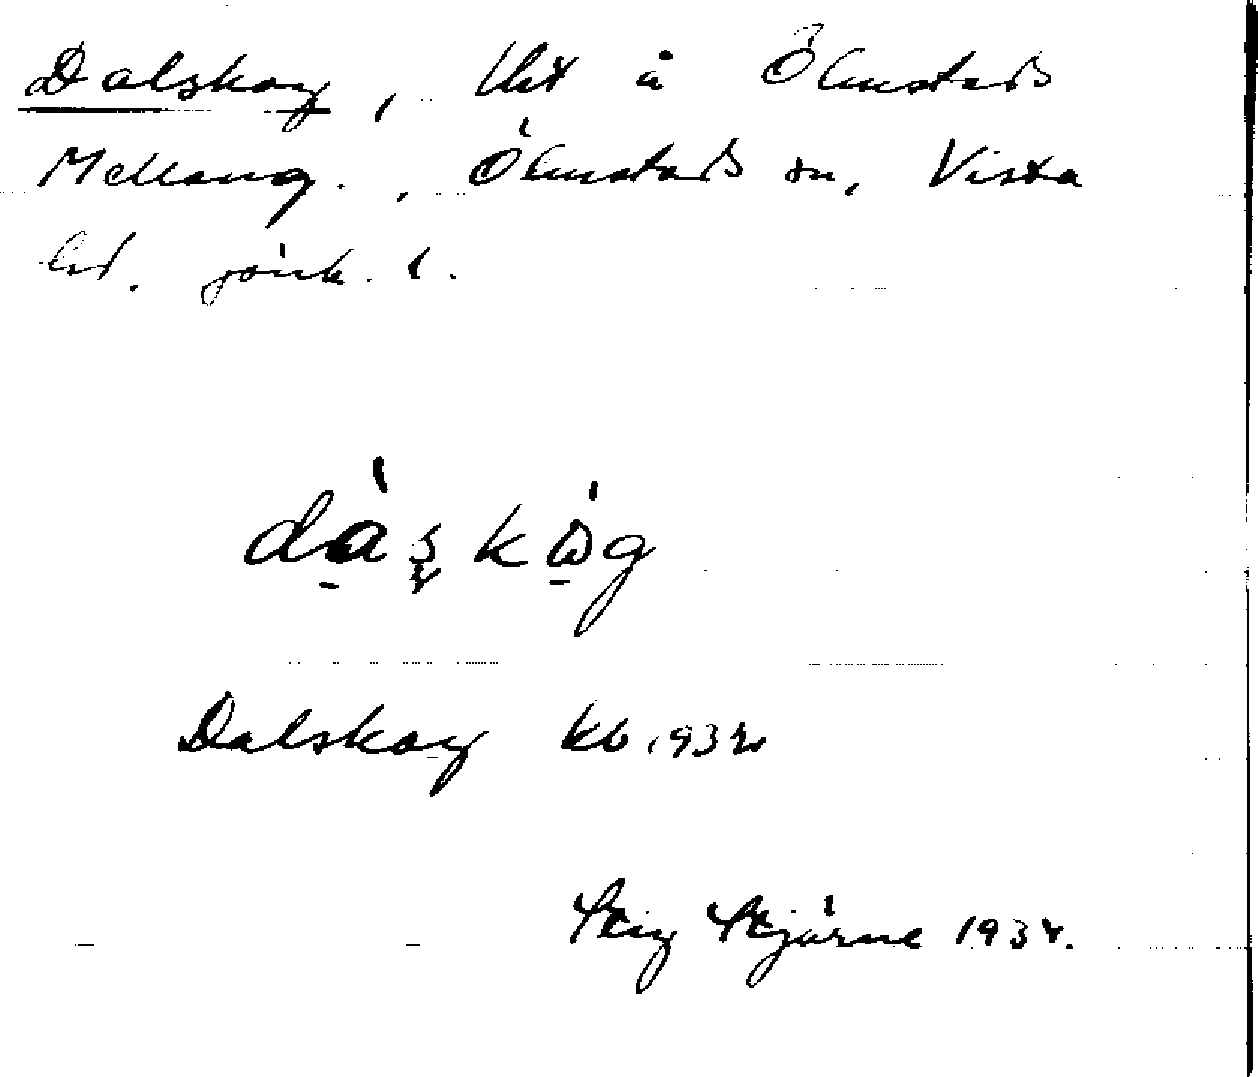 Dalskog, lht å Ölmstads
Mellang., Ölmstads sn, Vista
hd. Jönk. l.
dàskòg
Dalskog kb. 1932
Stig Stjärne 1932.